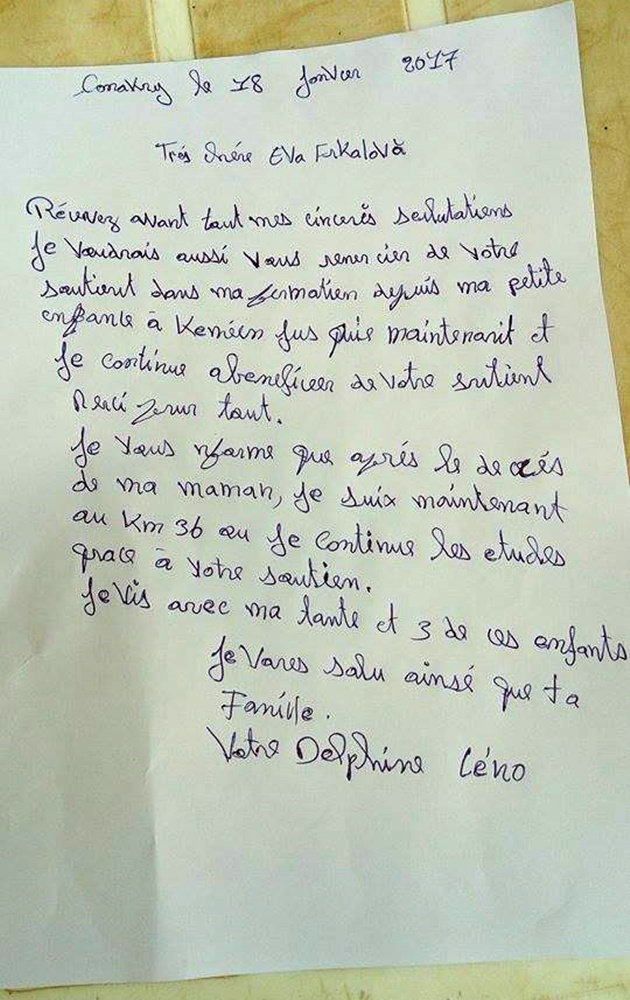 Conakry le 18 Janvier 2017
Très chère Eva Erkalovà
Réuvez avant tout mes cincerès salutations
Je voudrais aussi vous remercier de votre
soutient dans ma formation depuis ma petite
enfance à jus maintenanit et
Je continue abeneficier de votre soutient
Merci pour tout.
Je vous nforme que après le decés
de ma maman, je suix maintenant
au Km 36 ou je continue les etudes
grace à votre soutien.
Je vis avec ma tante et 3 de ces enfants
Je vous salu ainsé que ta
Famille.
Votre Delphine Céno